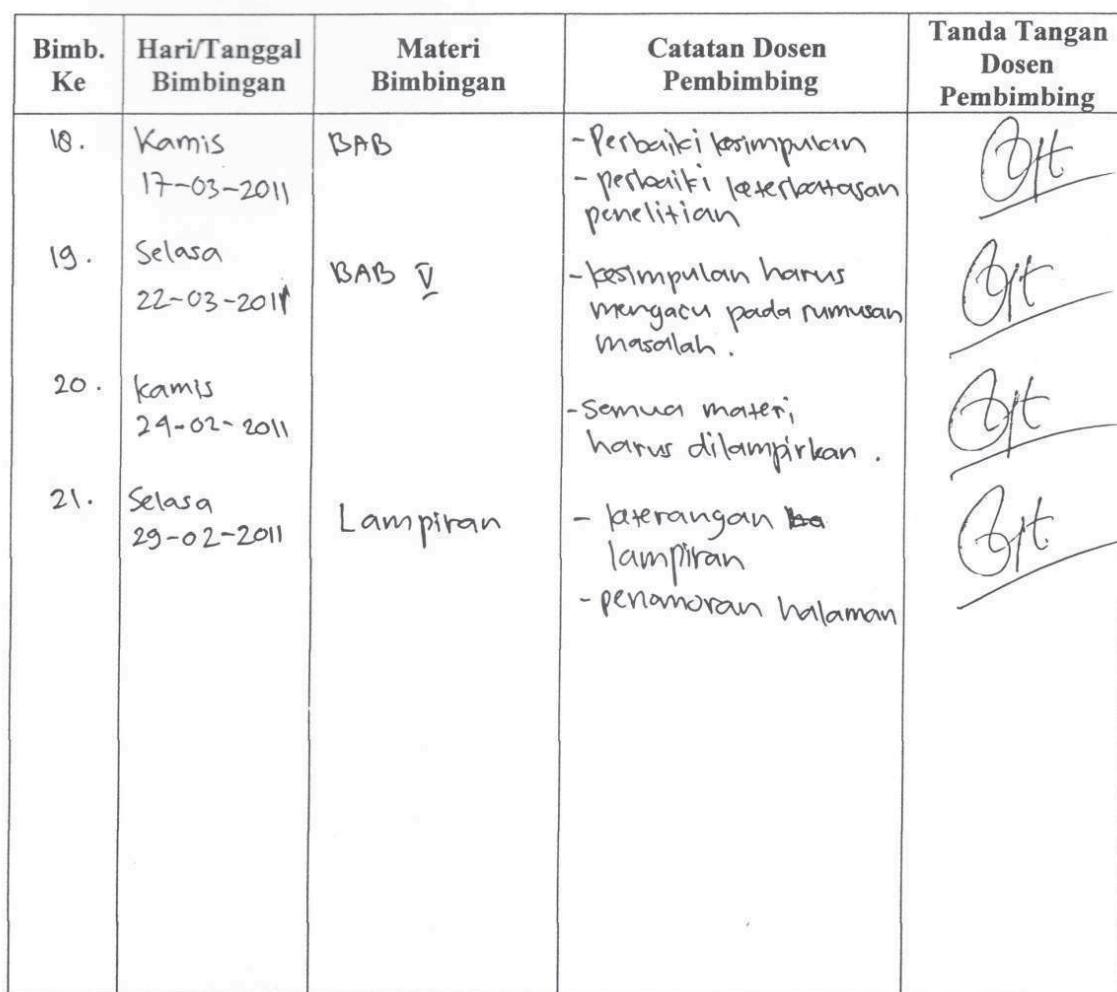 Bimb. Ke
Hari/Tanggal Bimbingan
Materi Bimbingan
Catatan Dosen Pembimbing
Tanda Tangan Dosen Pembimbing
18.
Kamis
17-03-2011
BAB
- Perbaiki kesimpulan
- perbaiki keterbatasan
penelitian
19.
Selasa
22-03-2011
BAB V
- kesimpulan harus
mengacu pada rumusan
masalah.
20.
kamis
24-02-2011
- Semua materi
harus dilampirkan.
21.
Selasa
29-02-2011
Lampiran
- keterangan
lampiran
- penomoran halaman